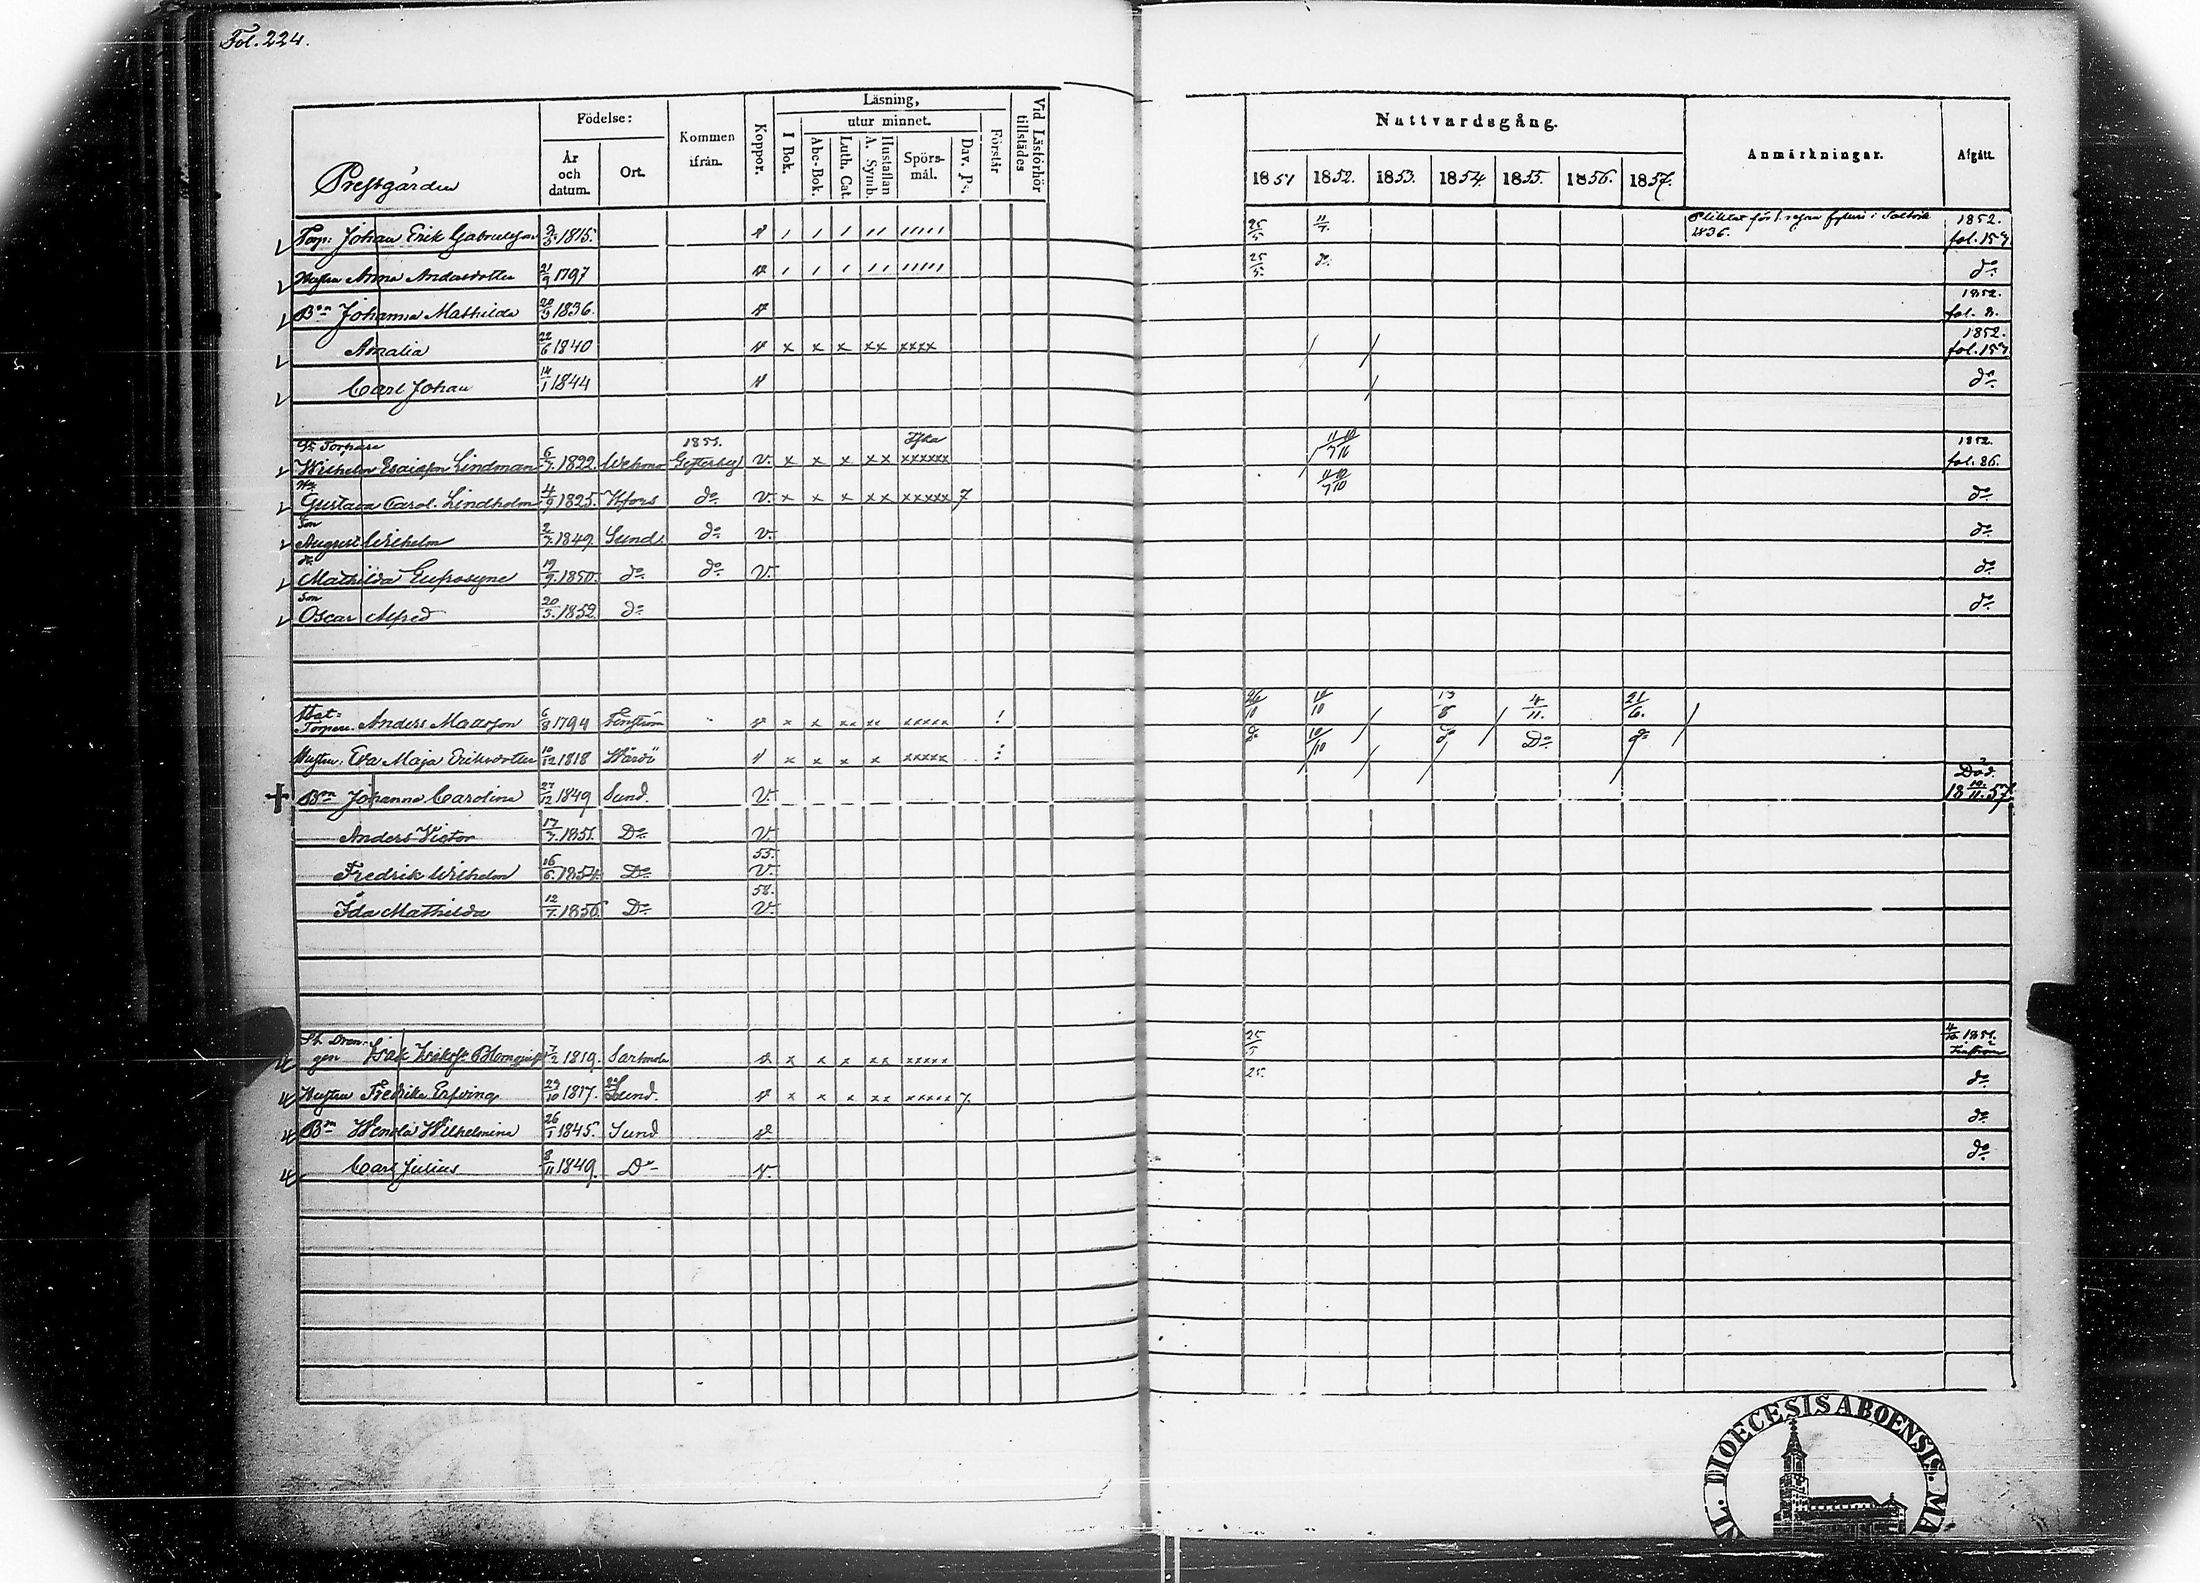 Fol. 224.
Prestgården
Födelse: År och datum. Ort.
Kommen ifrån.
Koppor.
Läsning, utur minnet.
I Bok. Abc-Bok. Luth. Cat. Hustaflan A. Symb. Spörs-mål. Dav. Ps. Förstår
Vid Läsförhör tillstädes
Nattvardsgång.
1851 1852. 1853. 1854. 1855. 1856. 1857.
Anmärkningar.
Afgått.
Torp: Johan Erik Gabrielsson 1815. v 25/5 11/7 1836. 1852. fol. 157
Hustru Anna Andersdotter 21/9 1797 v 25/5 do do
Bn Johanna Mathilda 20/9 1836. v 1852. fol. 8.
Amalia 22/6 1840 v x x x xx xxxx 1852. fol. 157
Carl Johan 14/1 1844 v do
Torpare 1851.
Wilhelm Esaiasson Lindman 6/7 1822. Wehmo Gesterby v. x x x xx xxxxxx 1852. fol. 86.
Hu Gustava Carol. Lindholm 4/9 1825. Hfors do v. x x x xx xxxxx 7 do
Son August Wilhelm 2/7 1849. Sund. do v. do
Dr Mathilda Eufrosyne 19/9 1850. do do v. do
Son Oscar Alfred 20/5 1852. do do
Stat=
Torpare. Anders Mattsson 6/8 1794 Finström v x x xx xx xxxxx 26/10 10/10 13/8 4/11. 21/6.
Hustru. Eva Maja Eriksdotter 10/12 1818 Wårdö v x x x x xxxxx do 10/10 do Do do
Bn Johanna Carolina 27/12 1849 Sund. v. Död. 18 10/11 57
Anders Victor 17/7 1851. Do v.
Fredrik Wilhelm 16/6 1854. Do 55. v.
Ida Mathilda 12/7 1856 Do 58. v.
Dren-
gen Isak Isaksson Blomqvist 7/2 1819. v x x x xx xxxxx 25/5 4/10 1851.
Hustru Fredrika Erfving 29/10 1817. Sund. v x x x xx xxxxx 7. 25. do
Bn Wendla Wilhelmina 26/1 1845. Sund v do
Carl Julius 8/11 1849. Do v. do
DIOECESIS ABOENSIS. MA